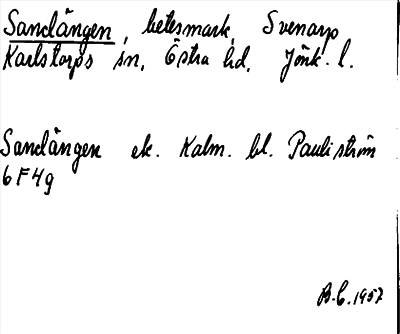 Sandängen, betesmark, Svenarp
Karlstorps sn, Östra hd, Jönk. l.
Sandängen ek. Kalm. bl. Pauliström
6F4g
B.C. 1957